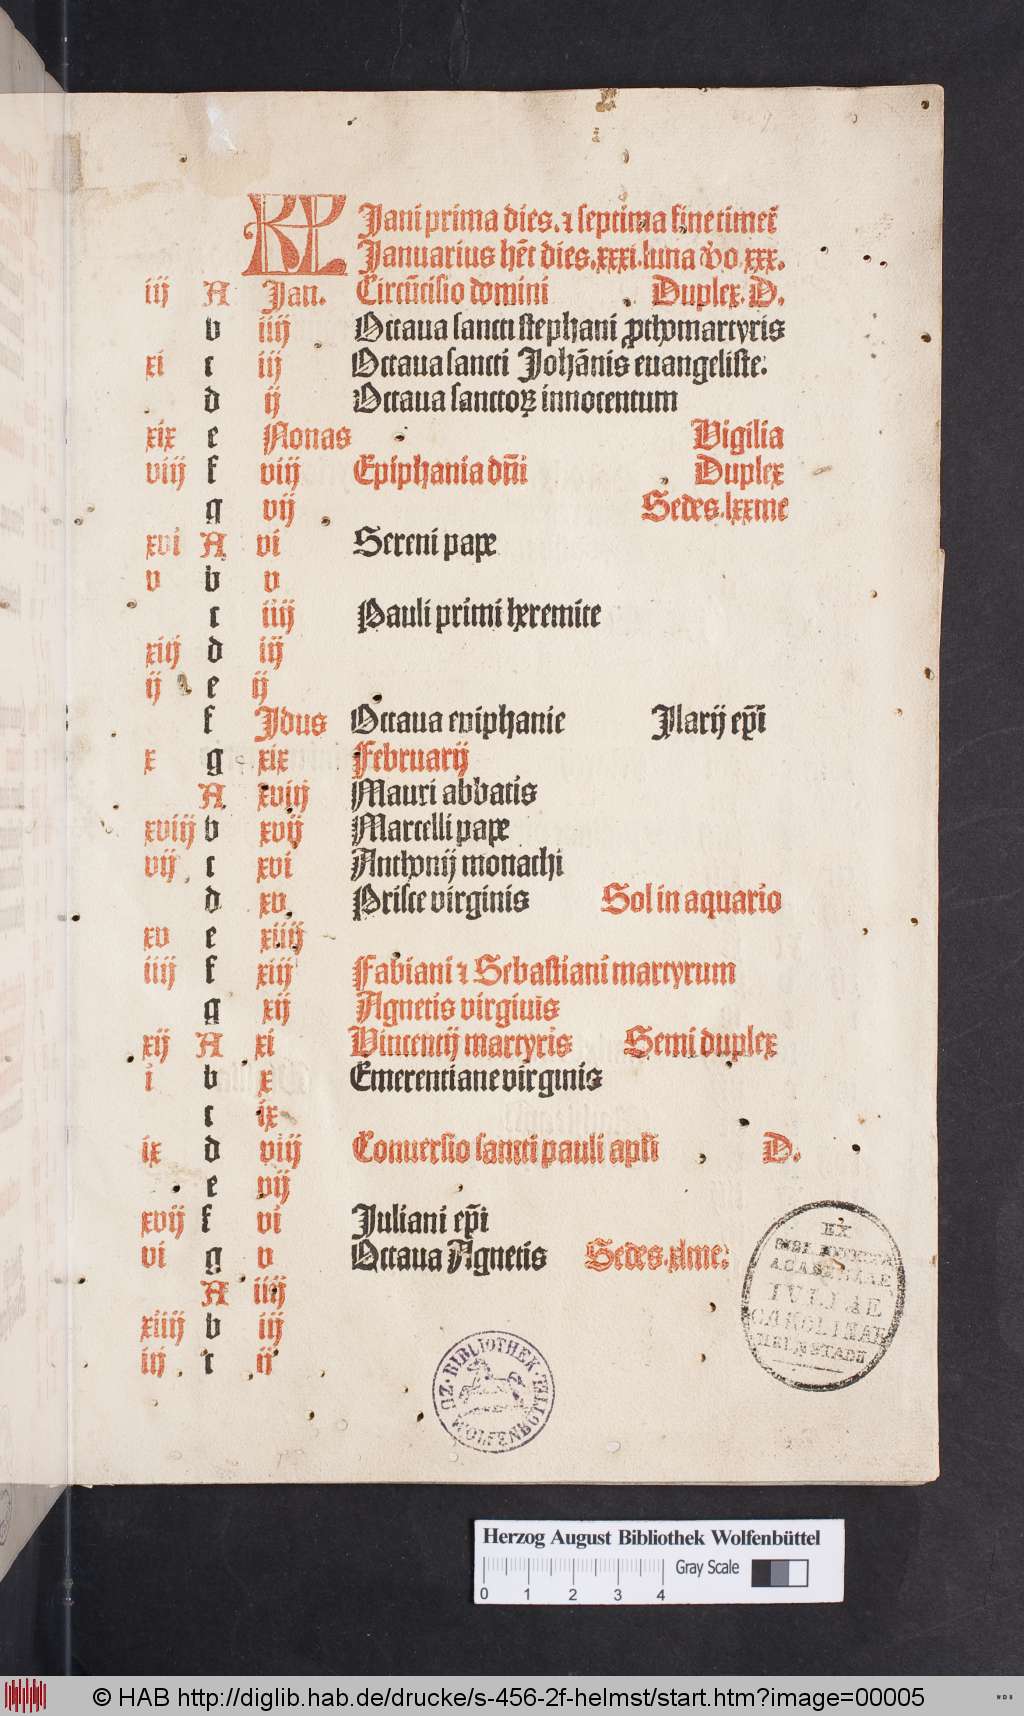 KL Jani prima dies. ⁊ septima fine timet̃
Januarius hēt dies. xxxi. luna vo xxx.
iij A Jan. Circũcisio domini Duplex. D.
b iiij Octaua sancti stephani ꝓthomartyris
xi c iij Octaua sancti Johãnis euangeliste:
d ij Octaua sanctoꝝ innocentum
xix e Nonas Vigilia
viij f viij Epiphania dñi Duplex
g vij Sedes. lxxme
xvi A vi Sereni pape
v b v
c iiij Pauli primi heremite
xiij d iij
ij e ij
f Jdus Octaua epiphanie Jlarij ep̄i
x g xix Februarij
A xviij Mauri abbatis
xviij b xvij Marcelli pape
vij c xvi Anthonij monachi
d xv Prisce virginis Sol in aquario
xv e xiiij
iiij f xiij Fabiani ⁊ Sebastiani martyrum
g xij Agnetis virgiuis
xij A xi Vincencij martyris Semi duplex
i b x Emerentiane virginis
c ix
ix d viij Conuersio sancti pauli apłi D.
e vij
xvij f vi Juliani ep̄i
vi g v Octaua Agnetis Sedes. xlme:
A iiij
xiiij b iij
iij c ij
EX
BIBLIOTHECA
ACADEMIAE
IVLIAE
CAROLINAE
HELMSTADII
BIBLIOTHEK ZU WOLFENBÜTTEL
Herzog August Bibliothek Wolfenbüttel
Gray Scale
0 1 2 3 4
© HAB http://diglib.hab.de/drucke/s-456-2f-helmst/start.htm?image=00005